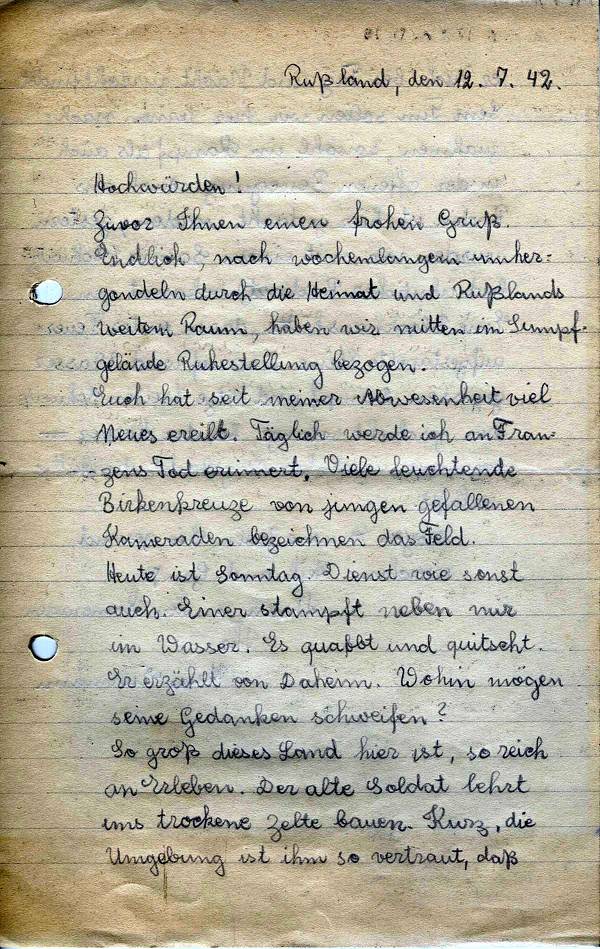 Rußland, den 12. 7. 42.
Hochwürden!
Zuvor Ihnen einen frohen Gruß.
Endlich, nach wochenlangem umher=
gondeln durch die Heimat und Rußlands
weitem Raum, haben wir mitten im Sumpf-
gelände Ruhestellung bezogen.
Euch hat seit meiner Abwesenheit viel
Neues ereilt. Täglich werde ich an Fran=
zens Tod erinnert. Viele leuchtende
Birkenkreuze von jungen gefallenen
Kameraden bezeichnen das Feld.
Heute ist Sonntag. Dienst wie sonst
auch. Einer stampft neben mir
im Wasser. Es quabbt und quitscht.
Er erzählt von Daheim. Wohin mögen
seine Gedanken schweifen?
So groß dieses Land hier ist, so reich
an Erleben. Der alte Soldat lehrt
uns trockene Zelte bauen. Kurz, die
Umgebung ist ihm so vertraut, daß